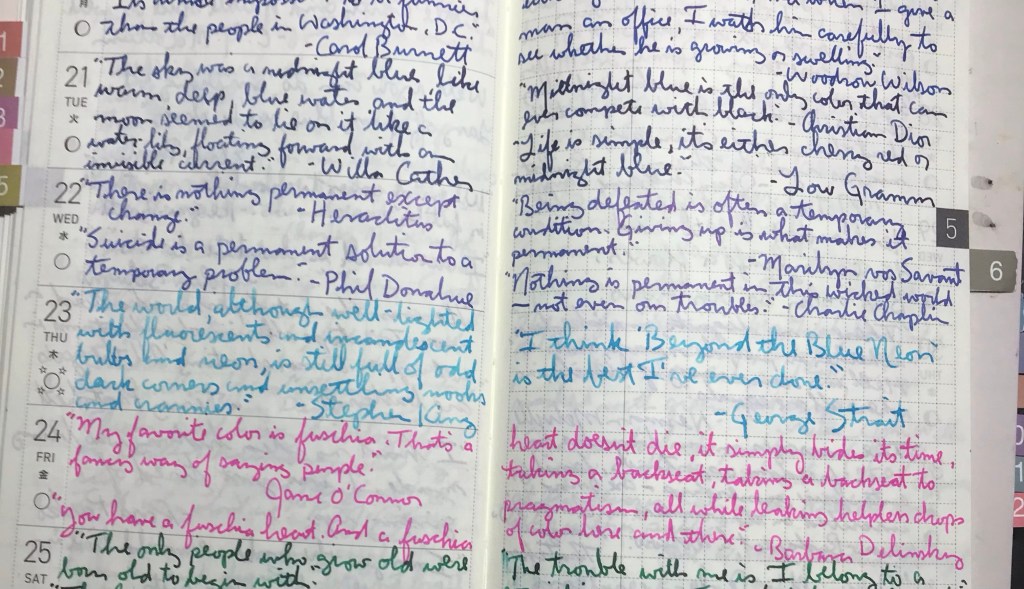 than the people in Washington, D.C."
-Carol Burnett
21
TUE
"The sky was a midnight blue, like
warm, deep, blue water and the
moon seemed to lie on it like a
water-lily, floating forward with an
invisible current." -Willa Cather
22
WED
"There is nothing permanent except
change." -Heraclitus
"Suicide is a permanent solution to a
temporary problem." -Phil Donahue
23
THU
"The world, although well-lighted
with fluorescents and incandescent
bulbs and neon, is still full of odd
dark corners and unsettling nooks
and crannies." -Stephen King
24
FRI
金
"My favorite color is fuschia. That's a
fancy way of saying people."
Jane O'Connor
"you have a fuschia heart. And a fuschia
25
SAT
"The only people who grow old were
born old to begin with."
when I give a
man an office, I watch him carefully to
see whether he is growing or swelling."
-Woodrow Wilson
"Midnight blue is the only color that can
ever compete with black." -Christian Dior
"Life is simple, its either cherry red or
midnight blue."
-Lou Gramm
"Being defeated is often a temporary
condition. Giving up is what makes it
permanent."
-Marilyn vos Savant
"Nothing is permanent in this wicked world
- not even our troubles." -Charlie Chaplin
"I think 'Beyond the Blue Neon'
is the best I've ever done."
-George Strait
heart doesn't die, it simply bides its time,
taking a backseat, taking a backseat to
pragmatism, all while leaking helpless drops
of color here and there." -Barbara Delinsky
"The trouble with me is I belong to a
5
6